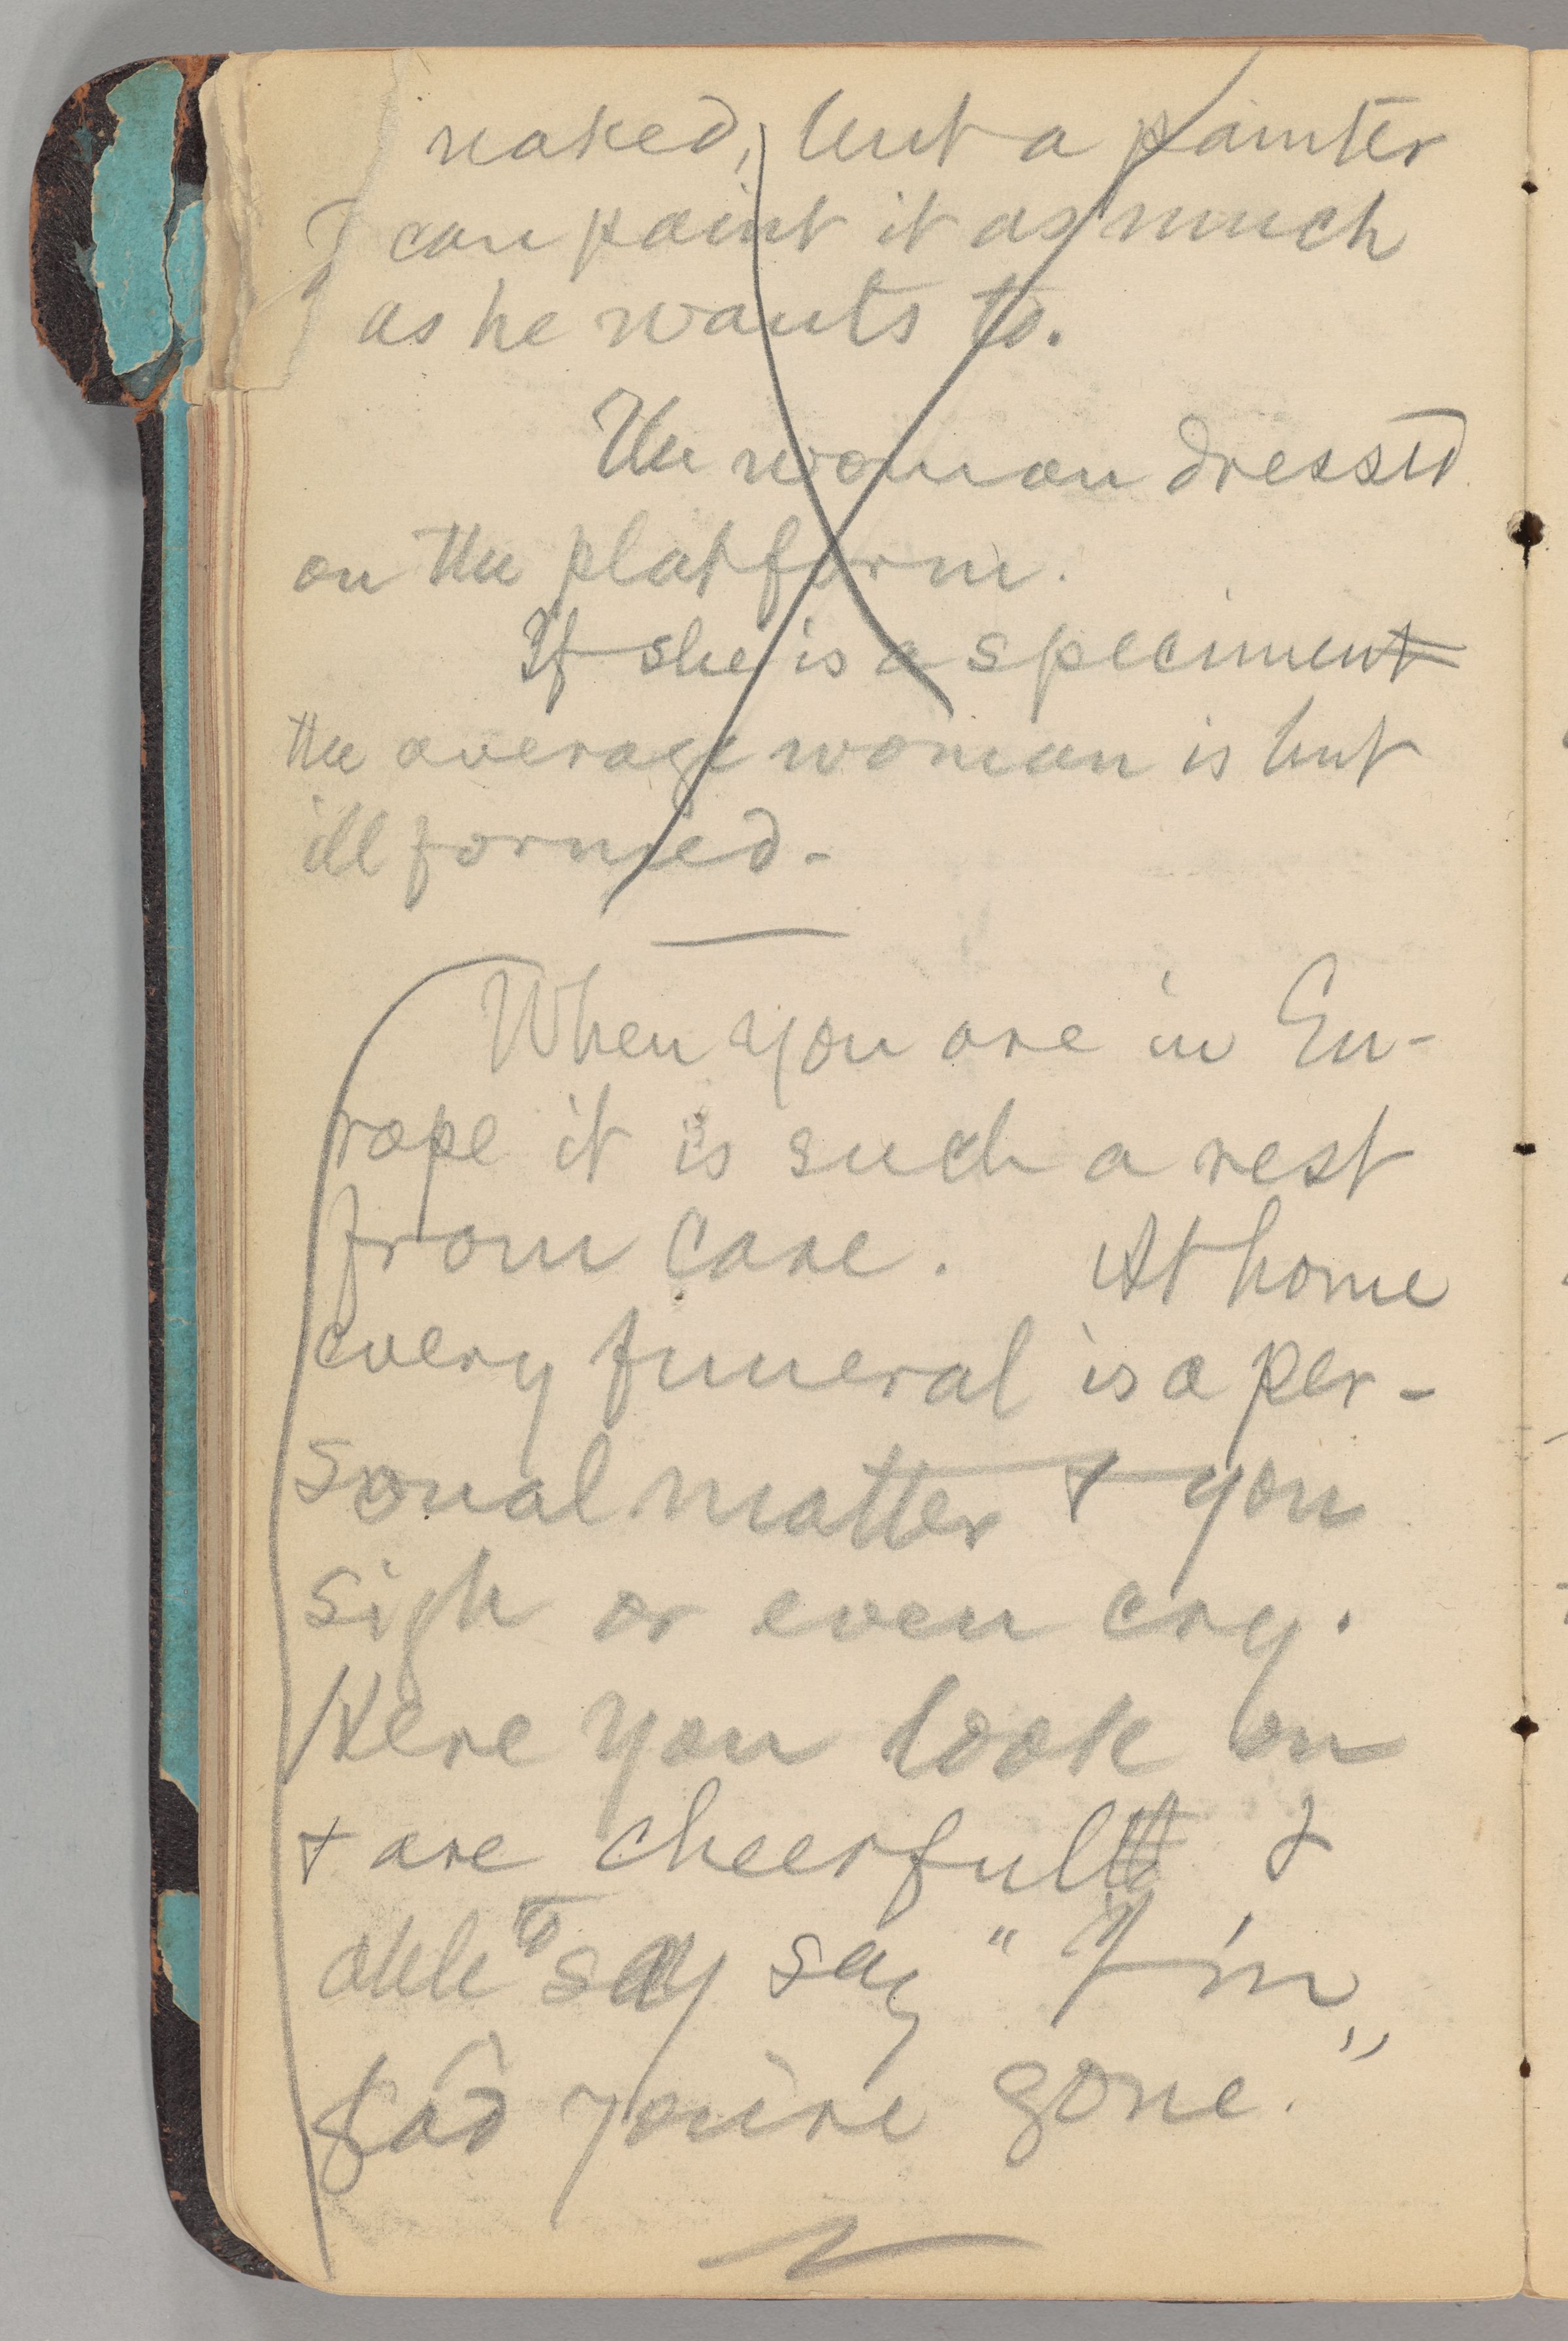 naked, but a painter
can paint it as much
as he wants to.
The woman dressed
on the platform.
If she is a specimen
the average woman is but
ill formed.
When you are in Eu-
rope it is such a rest
from care. At home
every funeral is a per-
sonal matter & you
sigh or even cry.
Here you look on
& are cheerful &
able to say say "I'm
glad you're gone."